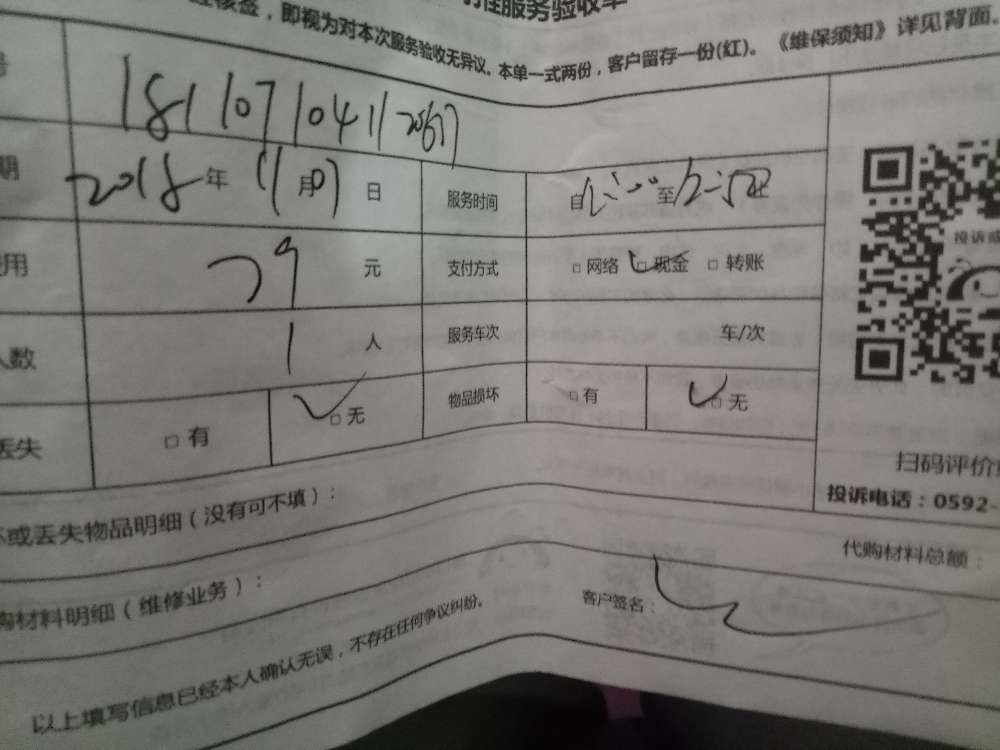 服务验收单
核签，即视为对本次服务验收无异议。本单一式两份，客户留存一份(红)。《维保须知》详见背面。
号 181107104112
期 2018年11月07日 服务时间 自 至
用 79 元 支付方式 □网络 □现金 □转账
投诉或
人数 1 人 服务车次 车/次
丢失 □有 □无 物品损坏 □有 □无
扫码评价
投诉电话：0592-
坏或丢失物品明细（没有可不填）：
代购材料总额：
购材料明细（维修业务）：
客户签名：
以上填写信息已经本人确认无误，不存在任何争议纠纷。